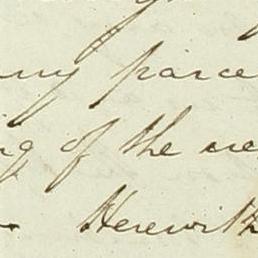 any parce
ng of the
- Herewith